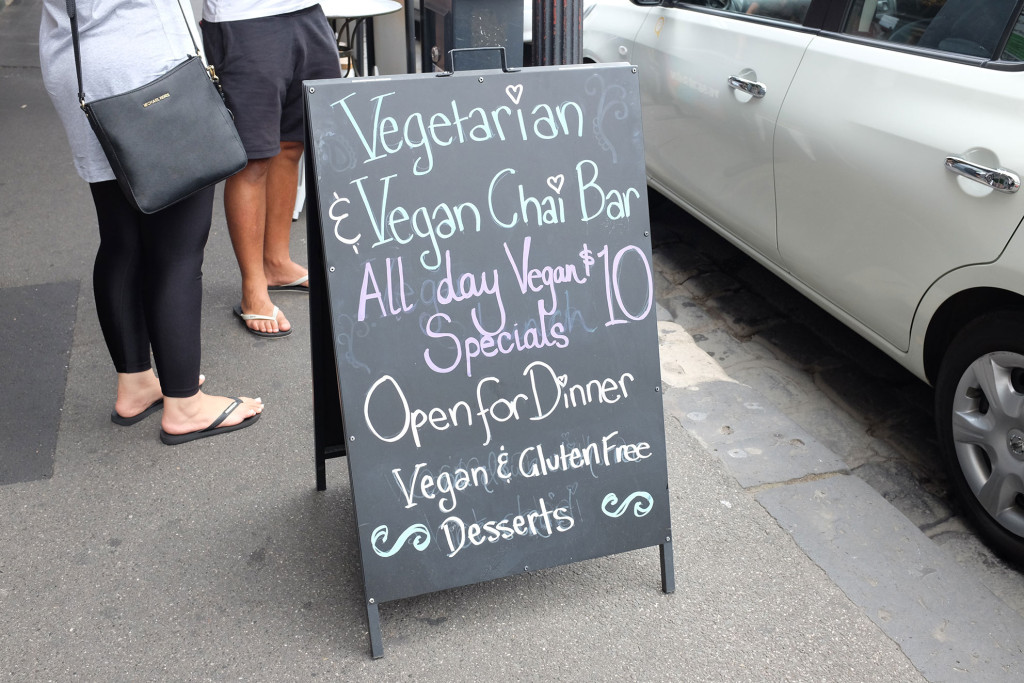 MICHAEL KORS
Vegetarian
& Vegan Chai Bar
All day Vegan $10
Specials
Open for Dinner
Vegan & Gluten Free
Desserts